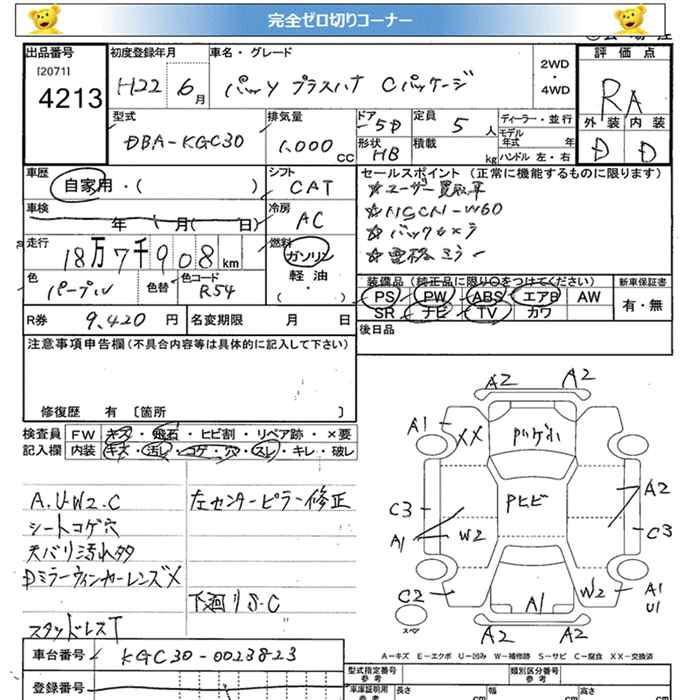 完全ゼロ切りコーナー
出品番号
[2071]
4213
初度登録年月
H22 6月
車名・グレード
パッソ プラスハナ Cパッケージ
2WD
・
4WD
評価点
RA
外装 内装
D D
型式
DBA-KGC30
排気量
1,000 cc
ドア
5D
形状
HB
定員
5 人
積載
kg
ディーラー・並行
モデル年式 年
ハンドル 左・右
車歴
自家用・( )
シフト
CAT
車検
年 ( 月( 日)
冷房
AC
走行
18万7千908km
燃料
ガソリン
軽油
( ・ )
色
パープル
色替
色コード
R54
R券 9,420 円
名変期限 月 日
セールスポイント (正常に機能するものに限ります)
☆ユーザー買取車
☆NSCN-W60
☆バックカメラ
☆電格ミラー
装備品 (純正品に限り○をつけてください)
PS PW ABS エアB AW
SR ナビ TV カワ
新車保証書
有・無
後日品
注意事項申告欄(不具合内容等は具体的に記入して下さい)
修復歴 有 〔箇所 〕
検査員記入欄
FW キズ・飛石・ヒビ割・リペア跡・×要
内装 キズ・汚レ・コゲ・穴・スレ・キレ・破レ
A.U.W2.C
シートコゲ穴
天バリ汚れ多
DミラーウィンカーレンズX
スタッドレスT
左センターピラー修正
下廻りS.C
A2 A2
A1 XX
PヒビA2
C3 C3
A1 W2
C2 A1 W2 A1
U1
スペア
A2 A2
A-キズ E-エクボ U-凹み W-補修跡 S-サビ C-腐食 XX-交換済
車台番号 KGC30-0023823
登録番号
型式指定番号
参考
類別区分番号
参考
車庫証明用
参考
長さ cm
幅 cm
高さ cm